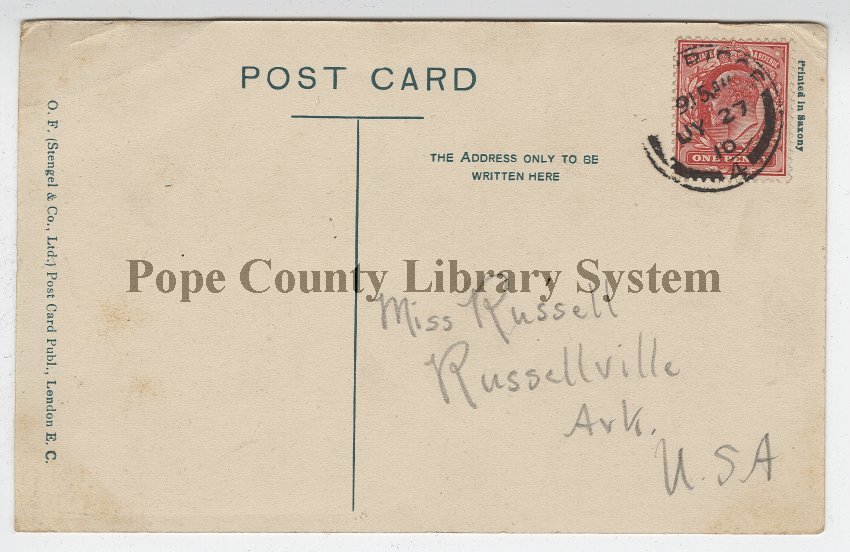 POST CARD
THE ADDRESS ONLY TO BE
WRITTEN HERE
O. F. (Stengel & Co., Ltd.) Post Card Publ., London E. C.
Printed in Saxony
9.15AM
JY 27
10
4
ONE PENNY
Pope County Library System
Miss Russell
Russellville
Ark.
U.S.A